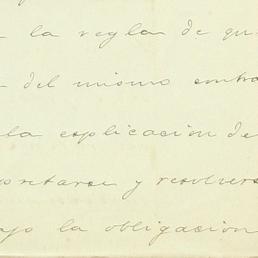 la regla de qu
del mismo contra
la esplicacion de
pretarse y resolvers
ajo la obligacion